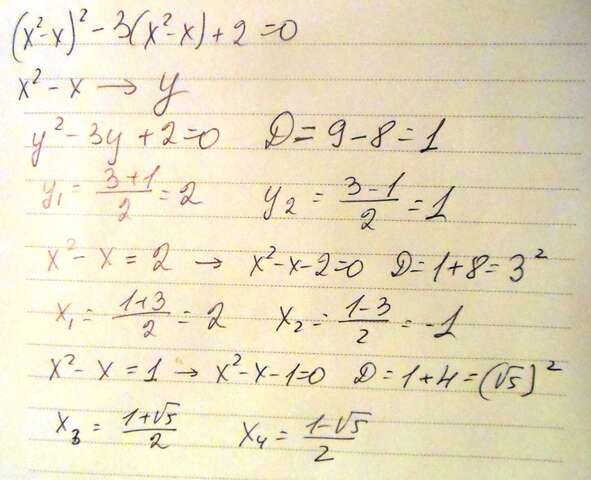 (x²-x)² - 3(x²-x) + 2 = 0
x² - x → y
y² - 3y + 2 = 0 D = 9 - 8 = 1
y₁ = (3+1)/2 = 2 y₂ = (3-1)/2 = 1
x² - x = 2 → x² - x - 2 = 0 D = 1 + 8 = 3²
x₁ = (1+3)/2 = 2 x₂ = (1-3)/2 = -1
x² - x = 1 → x² - x - 1 = 0 D = 1 + 4 = (√5)²
x₃ = (1+√5)/2 x₄ = (1-√5)/2